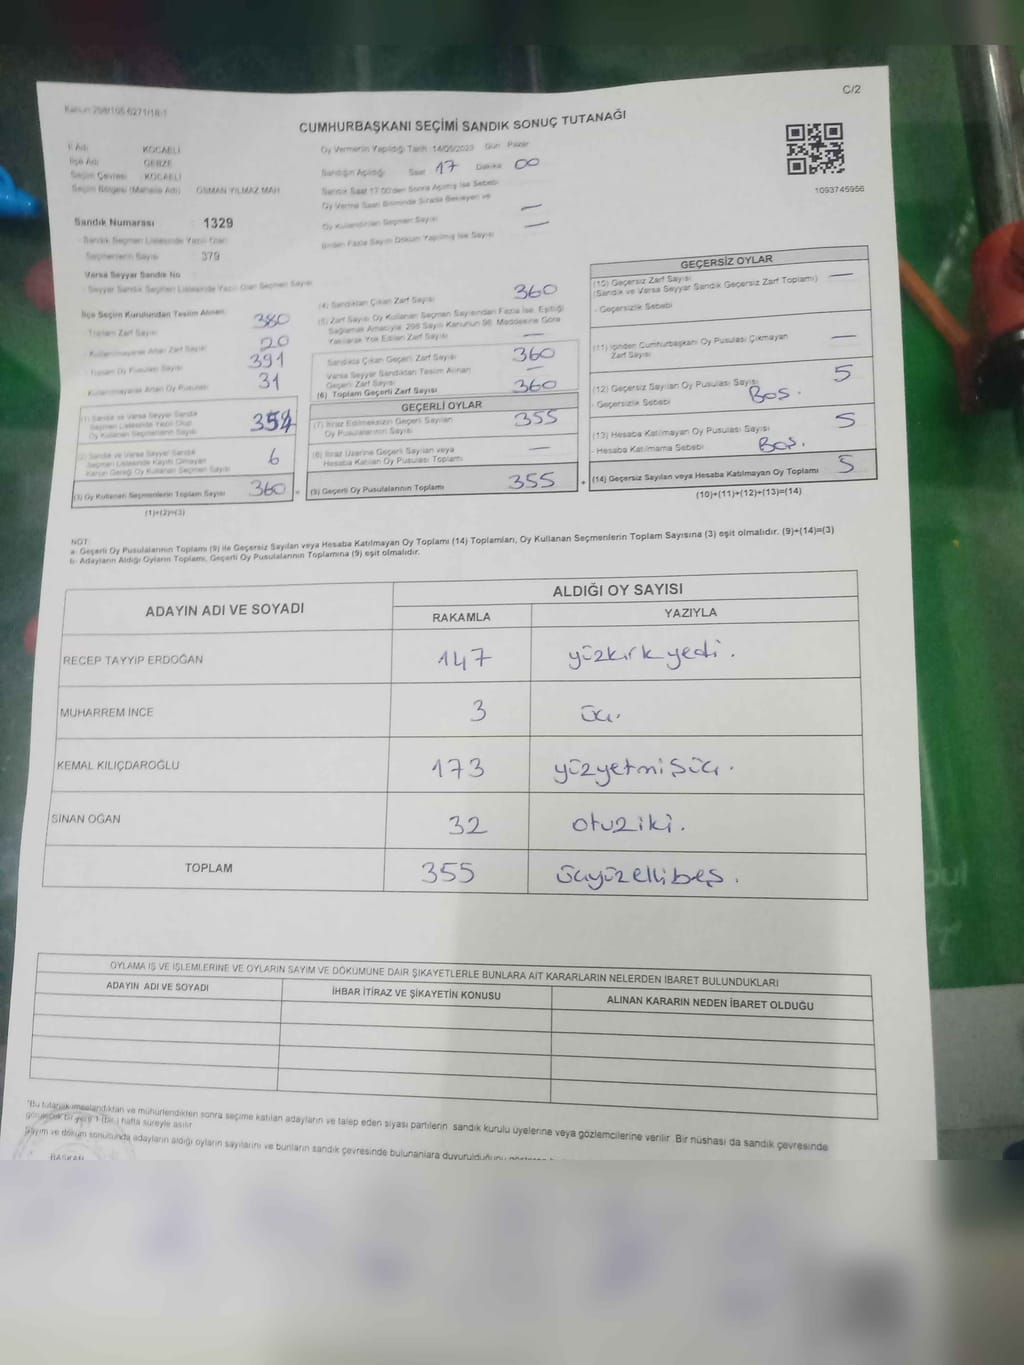 Kanun 298/105 6271/18-1
C/2
CUMHURBAŞKANI SEÇİMİ SANDIK SONUÇ TUTANAĞI
İl Adı KOCAELİ
İlçe Adı GEBZE
Seçim Çevresi KOCAELİ
Seçim Bölgesi (Mahalle Adı) OSMAN YILMAZ MAH
Sandık Numarası 1329
Sandık Seçmen Listesinde Yazılı Olan
Seçmenlerin Sayısı 379
Varsa Seyyar Sandık No
- Seyyar Sandık Seçmen Listesinde Yazılı Olan Seçmen Sayısı
İlçe Seçim Kurulundan Teslim Alınan
- Toplam Zarf Sayısı 380
- Kullanılmayarak Artan Zarf Sayısı 20
- Toplam Oy Pusulası Sayısı 391
- Kullanılmayarak Artan Oy Pusulası 31
(1) Sandık ve Varsa Seyyar Sandık
Seçmen Listesinde Yazılı Olup
Oy Kullanan Seçmenlerin Sayısı 354
(2) Sandık ve Varsa Seyyar Sandık
Seçmen Listesinde Kayıtlı Olmayan
Kanun Gereği Oy Kullanan Seçmen Sayısı 6
(3) Oy Kullanan Seçmenlerin Toplam Sayısı 360
(1)+(2)=(3)
Oy Vermenin Yapıldığı Tarih :14/05/2023 Gün Pazar
Sandığın Açıldığı Saat 17 Dakika 00
Sandık Saat 17:00'den Sonra Açılmış İse Sebebi
Oy Verme Saati Bitiminde Sırada Bekleyen ve
Oy Kullandırılan Seçmen Sayısı —
Birden Fazla Sayım Döküm Yapılmış İse Sayısı —
(4) Sandıktan Çıkan Zarf Sayısı 360
(5) Zarf Sayısı Oy Kullanan Seçmen Sayısından Fazla İse, Eşitliği
Sağlamak Amacıyla, 298 Sayılı Kanunun 98. Maddesine Göre
Yakılarak Yok Edilen Zarf Sayısı —
Sandıkta Çıkan Geçerli Zarf Sayısı 360
Varsa Seyyar Sandıktan Teslim Alınan
Geçerli Zarf Sayısı —
(6) Toplam Geçerli Zarf Sayısı 360
GEÇERLİ OYLAR
(7) İtiraz Edilmeksizin Geçerli Sayılan
Oy Pusulalarının Sayısı 355
(8) İtiraz Üzerine Geçerli Sayılan veya
Hesaba Katılan Oy Pusulası Toplamı —
= (9) Geçerli Oy Pusulalarının Toplamı 355
GEÇERSİZ OYLAR
(10) Geçersiz Zarf Sayısı
(Sandık ve Varsa Seyyar Sandık Geçersiz Zarf Toplamı) —
- Geçersizlik Sebebi
(11) İçinden Cumhurbaşkanı Oy Pusulası Çıkmayan
Zarf Sayısı —
(12) Geçersiz Sayılan Oy Pusulası Sayısı 5
- Geçersizlik Sebebi BOŞ.
(13) Hesaba Katılmayan Oy Pusulası Sayısı 5
- Hesaba Katılmama Sebebi BOŞ.
+ (14) Geçersiz Sayılan veya Hesaba Katılmayan Oy Toplamı 5
(10)+(11)+(12)+(13)=(14)
1093745956
NOT:
a- Geçerli Oy Pusulalarının Toplamı (9) ile Geçersiz Sayılan veya Hesaba Katılmayan Oy Toplamı (14) Toplamları, Oy Kullanan Seçmenlerin Toplam Sayısına (3) eşit olmalıdır. (9)+(14)=(3)
b- Adayların Aldığı Oyların Toplamı, Geçerli Oy Pusulalarının Toplamına (9) eşit olmalıdır.
ADAYIN ADI VE SOYADI ALDIĞI OY SAYISI
RAKAMLA YAZIYLA
RECEP TAYYİP ERDOĞAN 147 yüzkırkyedi.
MUHARREM İNCE 3 üç.
KEMAL KILIÇDAROĞLU 173 yüzyetmişüç.
SİNAN OĞAN 32 otuziki.
TOPLAM 355 üçyüzellibeş.
OYLAMA İŞ VE İŞLEMLERİNE VE OYLARIN SAYIM VE DÖKÜMÜNE DAİR ŞİKAYETLERLE BUNLARA AİT KARARLARIN NELERDEN İBARET BULUNDUKLARI
ADAYIN ADI VE SOYADI İHBAR İTİRAZ VE ŞİKAYETİN KONUSU ALINAN KARARIN NEDEN İBARET OLDUĞU
*Bu tutanak imzalandıktan ve mühürlendikten sonra seçime katılan adayların ve talep eden siyasi partilerin sandık kurulu üyelerine veya gözlemcilerine verilir. Bir nüshası da sandık çevresinde
görülecek bir yere 1 (bir) hafta süreyle asılır.
Sayım ve döküm sonucunda adayların aldığı oyların sayılarını ve bunların sandık çevresinde bulunanlara duyurulduğunu
BAŞKAN